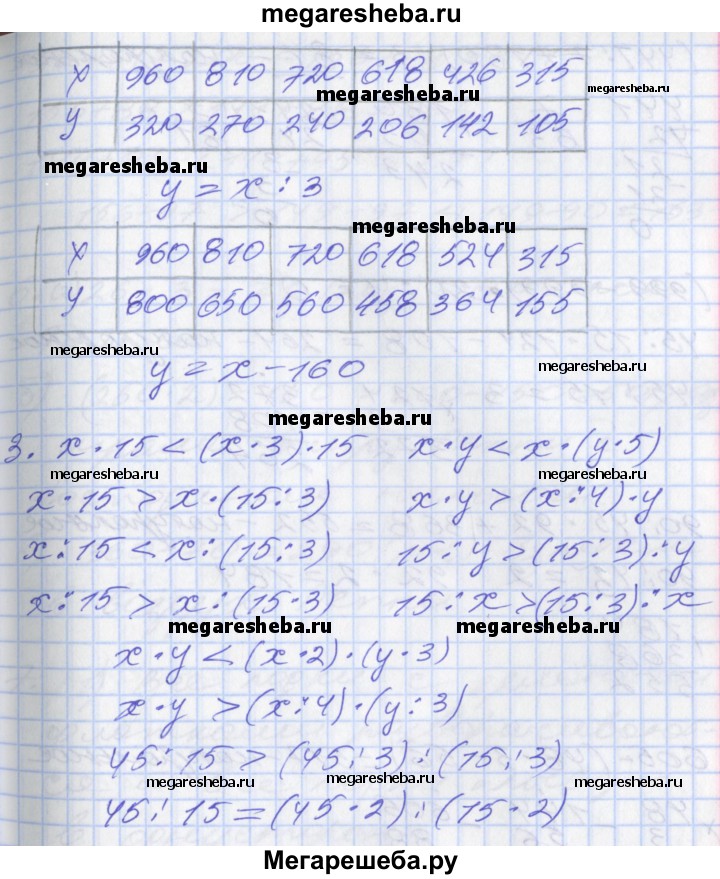 megaresheba.ru
x 960 810 720 618 426 315
megaresheba.ru
megaresheba.ru
y 320 270 240 206 142 105
megaresheba.ru
y = x : 3
megaresheba.ru
x 960 810 720 618 524 315
y 800 650 560 458 364 155
megaresheba.ru
y = x - 160
megaresheba.ru
megaresheba.ru
3. x · 15 < (x · 3) · 15 x · y < x · (y · 5)
megaresheba.ru
megaresheba.ru
x · 15 > x · (15 : 3) x · y > (x : 4) · y
x : 15 < x : (15 : 3) 15 : y > (15 : 3) : y
x : 15 > x : (15 · 3) 15 : x > (15 : 3) : x
megaresheba.ru
megaresheba.ru
x · y < (x · 2) · (y · 3)
x · y > (x : 4) · (y : 3)
45 : 15 > (45 : 3) : (15 : 3)
megaresheba.ru
megaresheba.ru
megaresheba.ru
45 : 15 = (45 · 2) : (15 · 2)
Мегарешеба.ру